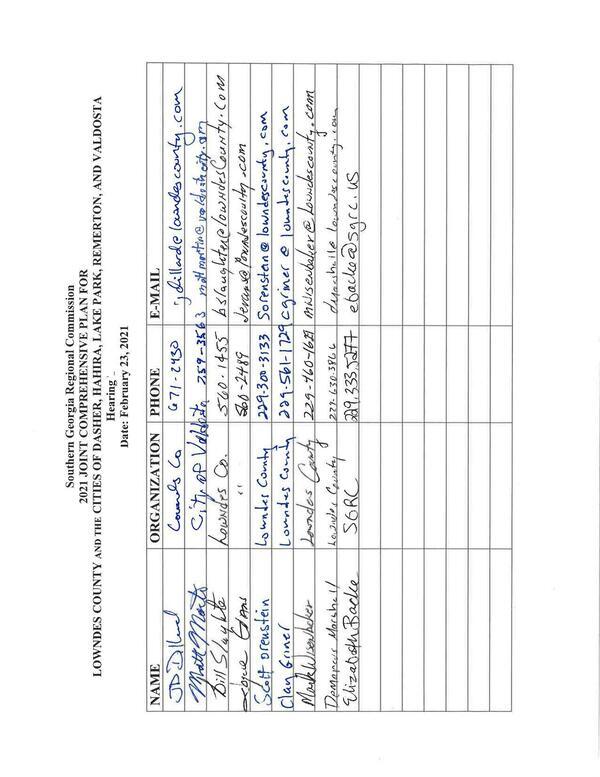 Southern Georgia Regional Commission
2021 JOINT COMPREHENSIVE PLAN FOR
LOWNDES COUNTY AND THE CITIES OF DASHER, HAHIRA, LAKE PARK, REMERTON, AND VALDOSTA
Hearing
Date: February 23, 2021
NAME ORGANIZATION PHONE E-MAIL
JD Dillard Lowndes Co 671-2430 jdillard@lowndescounty.com
Matt Martin City of Valdosta 259-3563 mattmartin@valdostacity.com
Bill Slaughter Lowndes Co. 560-1455 bslaughter@lowndesCounty.com
Evans " 560-2489 @lowndescounty.com
Scott Orenstein Lowndes County 229-300-3133 Sorenstein@lowndescounty.com
Clay Griner Lowndes County 229-561-1729 cgriner@lowndescounty.com
Mark Wisenbaker Lowndes County 229-460-1621 mwisenbaker@lowndescounty.com
Demarcus Marshall Lowndes County 229-630-3866
Elizabeth Backe SGRC 229.333.5277 ebacke@sgrc.us